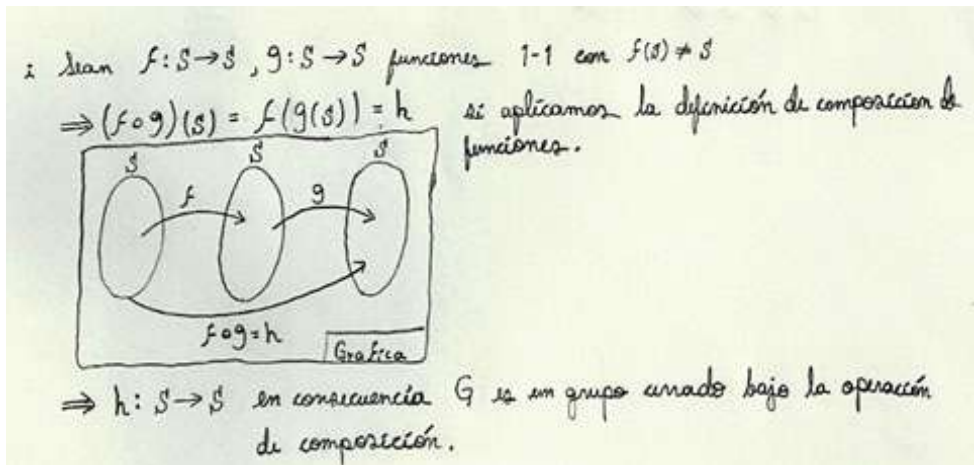 i Sean f: S→S, g: S→S funciones 1-1 con f(s) ≠ S
⇒ (f∘g)(s) = f(g(s)) = h si aplicamos la definición de composición de
funciones.
S S S
f g
f∘g=h
Grafica
⇒ h: S→S en consecuencia G es un grupo cerrado bajo la operación
de composición.